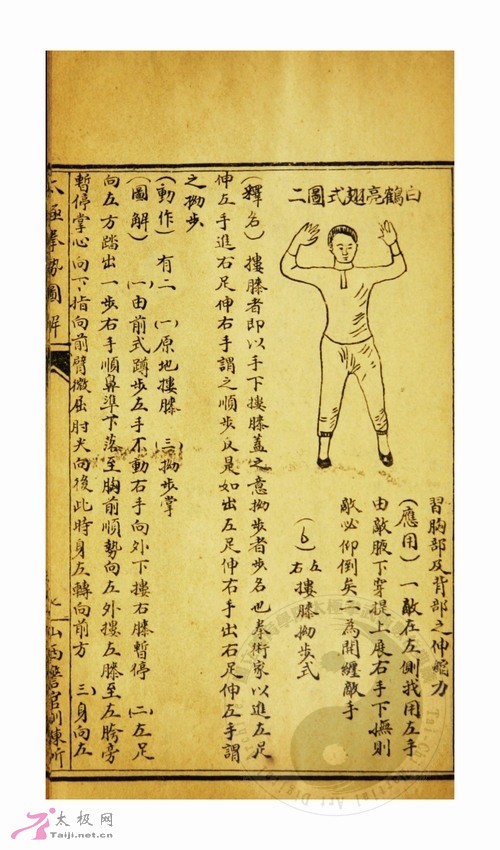 白鶴亮翅式圖二
習胸部及背部之伸縮力
(應用)一敵在左側我用左手
由敵腋下穿提上展右手下撫則
敵必仰倒矣二為開纏敵手
(6)左右摟膝拗步式
(釋名)摟膝者即以手下摟膝蓋之意拗步者步名也拳術家以進左足
伸左手進右足伸右手謂之順步反是如出左足伸右手出右足伸左手謂
之拗步
(動作)有二 (一)原地摟膝 (二)拗步掌
(圖解) (一)由前式蹲步左手不動右手向外下摟右膝暫停 (二)左足
向左方踏出一步右手順鼻準下落至胸前順勢向左外摟左膝至左胯旁
暫停掌心向下指向前臂微屈肘尖向後此時身左轉向前方 (三)身向左
太極拳勢圖解
山西警官訓練所
太极网
Taiji.net.cn